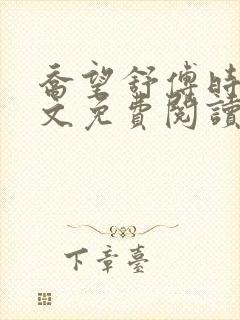 喬望舒傅時
文免費閱讀
下章臺